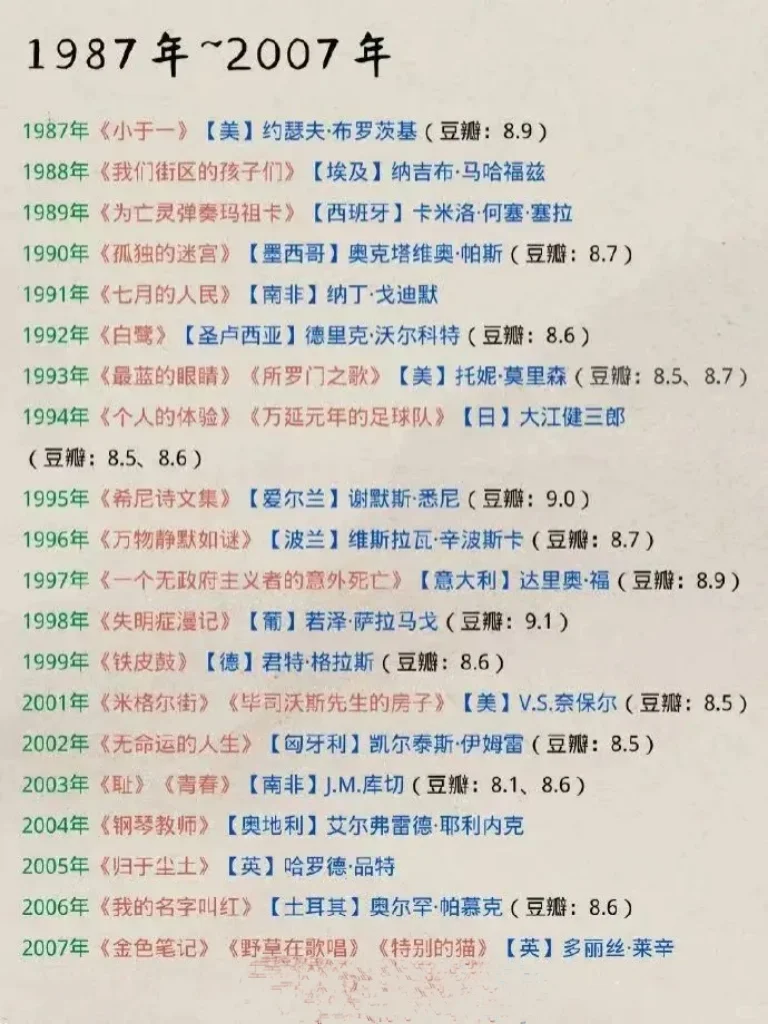 1987年~2007年
1987年《小于一》【美】约瑟夫·布罗茨基(豆瓣:8.9)
1988年《我们街区的孩子们》【埃及】纳吉布·马哈福兹
1989年《为亡灵弹奏玛祖卡》【西班牙】卡米洛·何塞·塞拉
1990年《孤独的迷宫》【墨西哥】奥克塔维奥·帕斯(豆瓣:8.7)
1991年《七月的人民》【南非】纳丁·戈迪默
1992年《白鹭》【圣卢西亚】德里克·沃尔科特(豆瓣:8.6)
1993年《最蓝的眼睛》《所罗门之歌》【美】托妮·莫里森(豆瓣:8.5、8.7)
1994年《个人的体验》《万延元年的足球队》【日】大江健三郎
(豆瓣:8.5、8.6)
1995年《希尼诗文集》【爱尔兰】谢默斯·悉尼(豆瓣:9.0)
1996年《万物静默如谜》【波兰】维斯拉瓦·辛波斯卡(豆瓣:8.7)
1997年《一个无政府主义者的意外死亡》【意大利】达里奥·福(豆瓣:8.9)
1998年《失明症漫记》【葡】若泽·萨拉马戈(豆瓣:9.1)
1999年《铁皮鼓》【德】君特·格拉斯(豆瓣:8.6)
2001年《米格尔街》《毕司沃斯先生的房子》【美】V.S.奈保尔(豆瓣:8.5)
2002年《无命运的人生》【匈牙利】凯尔泰斯·伊姆雷(豆瓣:8.5)
2003年《耻》《青春》【南非】J.M.库切(豆瓣:8.1、8.6)
2004年《钢琴教师》【奥地利】艾尔弗雷德·耶利内克
2005年《归于尘土》【英】哈罗德·品特
2006年《我的名字叫红》【土耳其】奥尔罕·帕慕克(豆瓣:8.6)
2007年《金色笔记》《野草在歌唱》《特别的猫》【英】多丽丝·莱辛